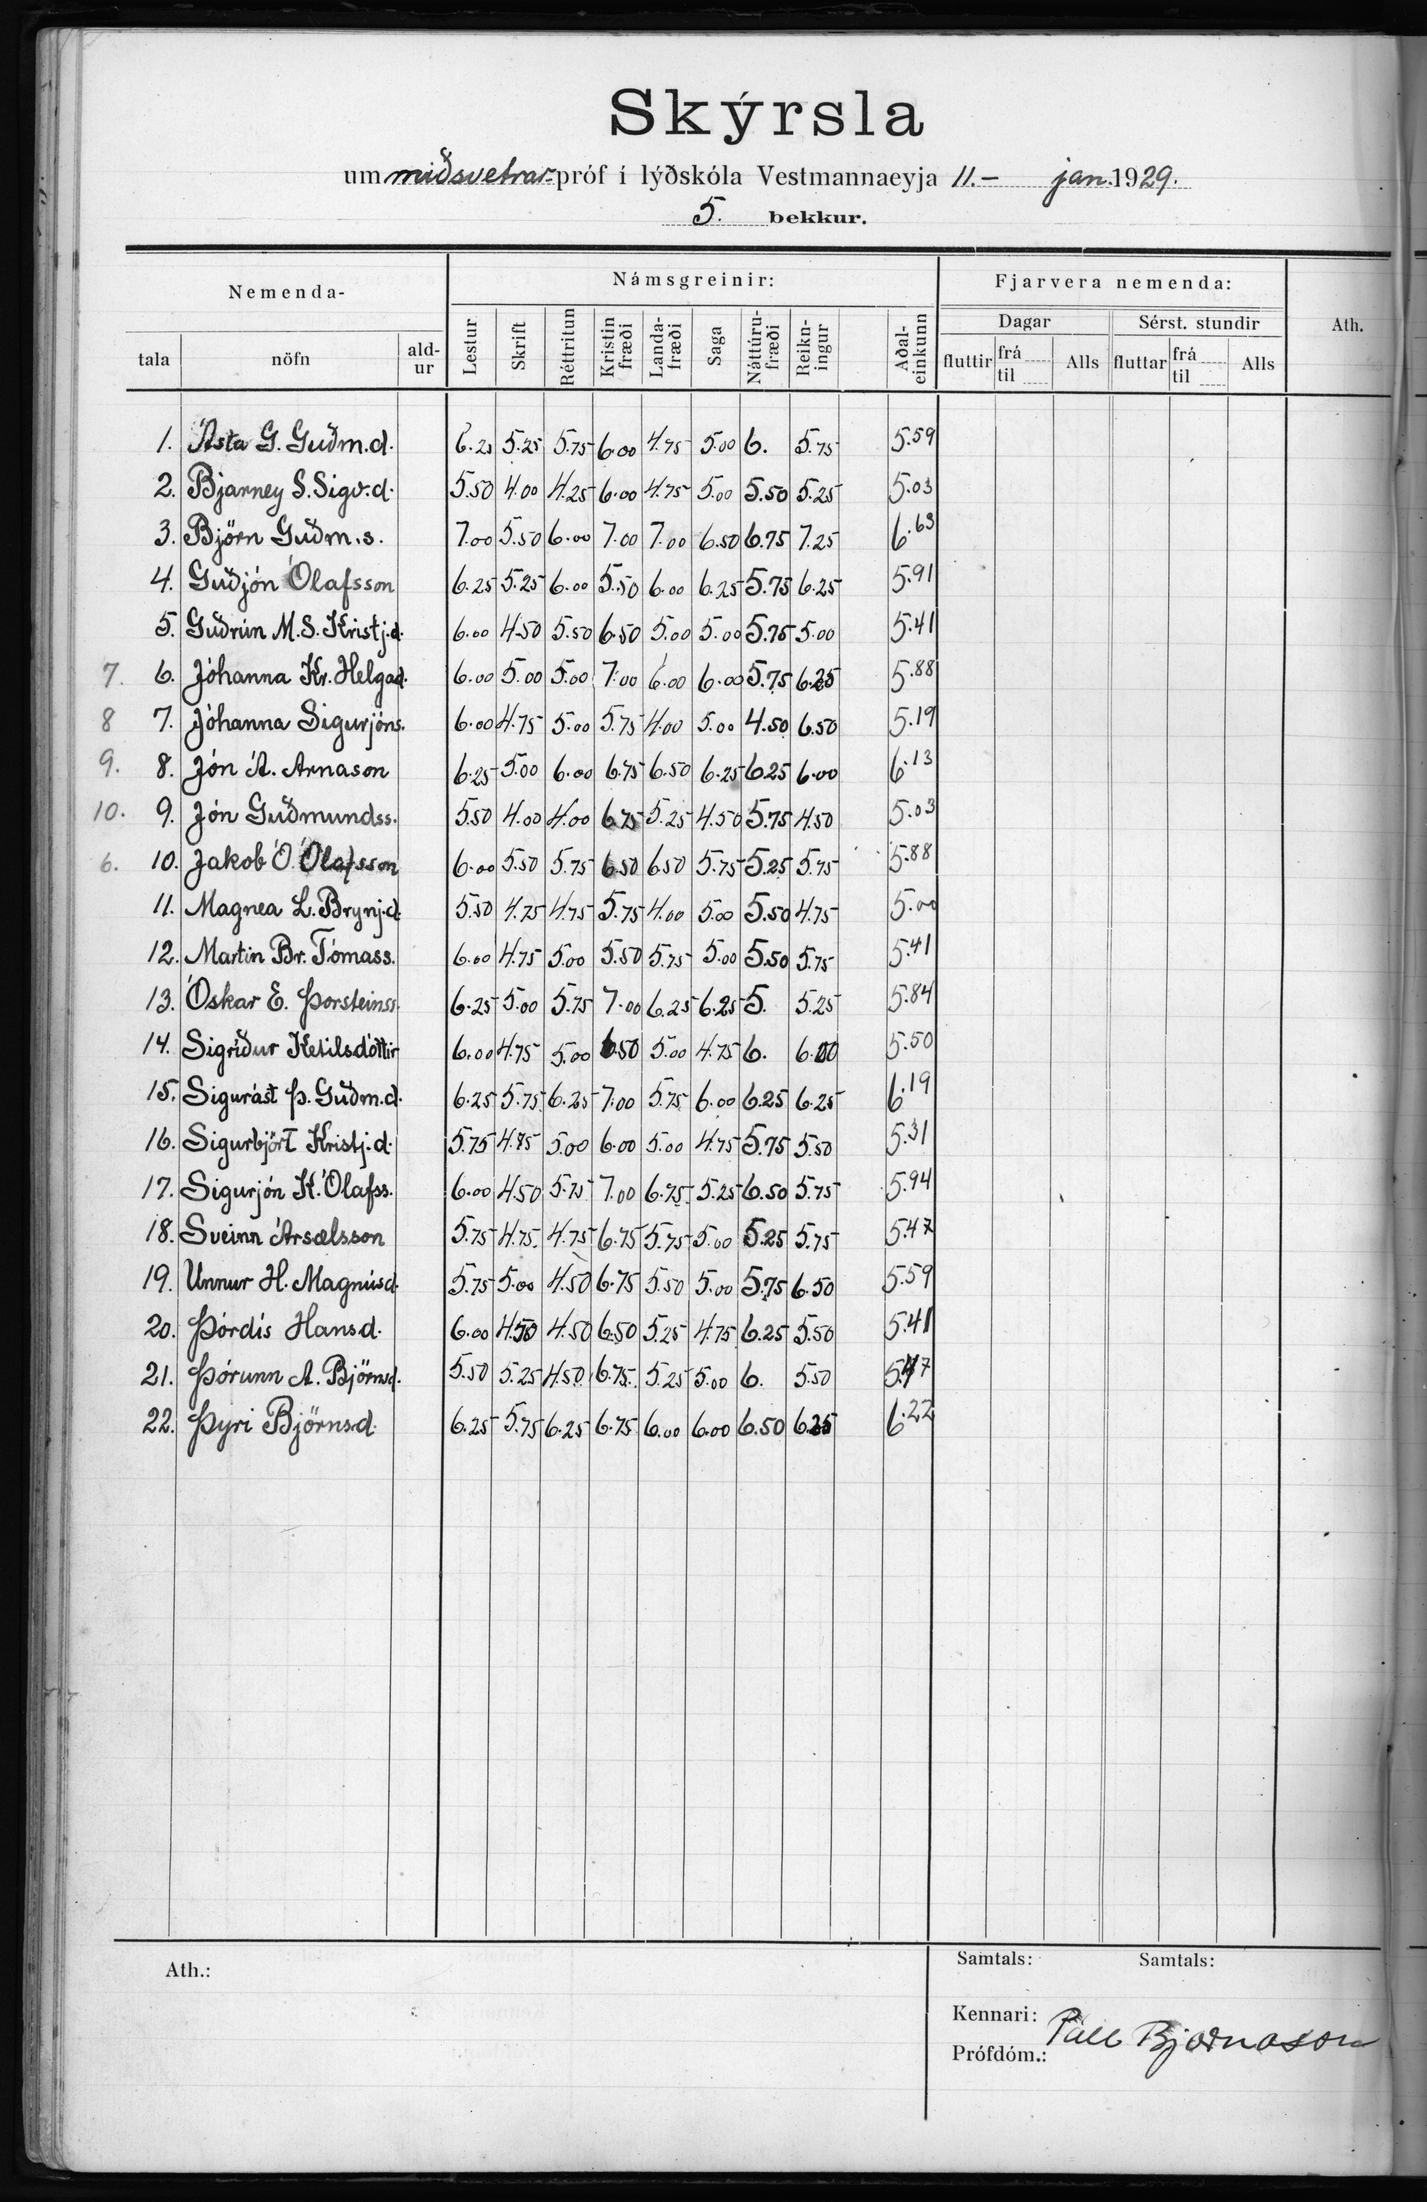 Skýrsla
um miðsvetrar-próf í lýðskóla Vestmannaeyja 11.- jan. 1929.
5. bekkur.
Nemenda- Námsgreinir: Fjarvera nemenda: Ath.
Dagar Sérst. stundir
tala nöfn ald-ur Lestur Skrift Réttritun Kristin fræði Landa-fræði Saga Náttúru-fræði Reikn-ingur Aðal-einkunn fluttir frá til Alls fluttar frá til Alls
1. Ásta G. Guðm.d. 6.25 5.25 5.75 6.00 4.75 5.00 6. 5.75 5.59
2. Bjarney S. Sigv.d. 5.50 4.00 4.25 6.00 4.75 5.00 5.50 5.25 5.03
3. Björn Guðm.s. 7.00 5.50 6.00 7.00 7.00 6.50 6.75 7.25 6.63
4. Guðjón Ólafsson 6.25 5.25 6.00 5.50 6.00 6.25 5.75 6.25 5.91
5. Guðrún M.S. Kristj.d. 6.00 4.50 5.50 6.50 5.00 5.00 5.75 5.00 5.41
7. 6. Jóhanna Kr. Helgad. 6.00 5.00 5.00 7.00 6.00 6.00 5.75 6.25 5.88
8 7. Jóhanna Sigurjóns. 6.00 4.75 5.00 5.75 4.00 5.00 4.50 6.50 5.19
9. 8. Jón Á. Árnason 6.25 5.00 6.00 6.75 6.50 6.25 6.25 6.00 6.13
10. 9. Jón Guðmundss. 5.50 4.00 4.00 6.75 5.25 4.50 5.75 4.50 5.03
6. 10. Jakob Ó. Ólafsson 6.00 5.50 5.75 6.50 6.50 5.75 5.25 5.75 5.88
11. Magnea L. Brynj.d. 5.50 4.75 4.75 5.75 4.00 5.00 5.50 4.75 5.00
12. Martin Br. Tómass. 6.00 4.75 5.00 5.50 5.75 5.00 5.50 5.75 5.41
13. Óskar E. Þorsteinss. 6.25 5.00 5.75 7.00 6.25 6.25 5. 5.25 5.84
14. Sigríður Ketilsdóttir 6.00 4.75 5.00 6.50 5.00 4.75 6. 6.00 5.50
15. Sigurást Þ. Guðm.d. 6.25 5.75 6.25 7.00 5.75 6.00 6.25 6.25 6.19
16. Sigurbjört Kristj.d. 5.75 4.75 5.00 6.00 5.00 4.75 5.75 5.50 5.31
17. Sigurjón K. Ólafss. 6.00 4.50 5.75 7.00 6.75 5.25 6.50 5.75 5.94
18. Sveinn Ársælsson 5.75 4.75 4.75 6.75 5.75 5.00 5.25 5.75 5.47
19. Unnur H. Magnúsd. 5.75 5.00 4.50 6.75 5.50 5.00 5.75 6.50 5.59
20. Þórdís Hansd. 6.00 4.50 4.50 6.50 5.25 4.75 6.25 5.50 5.41
21. Þórunn A. Björnsd. 5.50 5.25 4.50 6.75 5.25 5.00 6. 5.50 5.47
22. Þyri Björnsd. 6.25 5.75 6.25 6.75 6.00 6.00 6.50 6.25 6.22
Ath.: Samtals: Samtals:
Kennari: Páll Bjarnason
Prófdóm.: